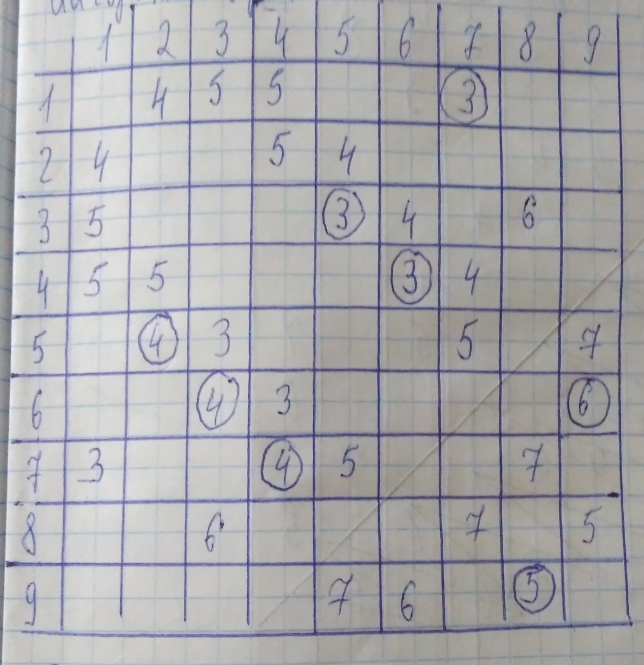 1 2 3 4 5 6 7 8 9
1 4 5 5 3
2 4 5 4
3 5 3 4 6
4 5 5 3 4
5 4 3 5 7
6 4 3 6
7 3 4 5 7
8 6 7 5
9 7 6 5